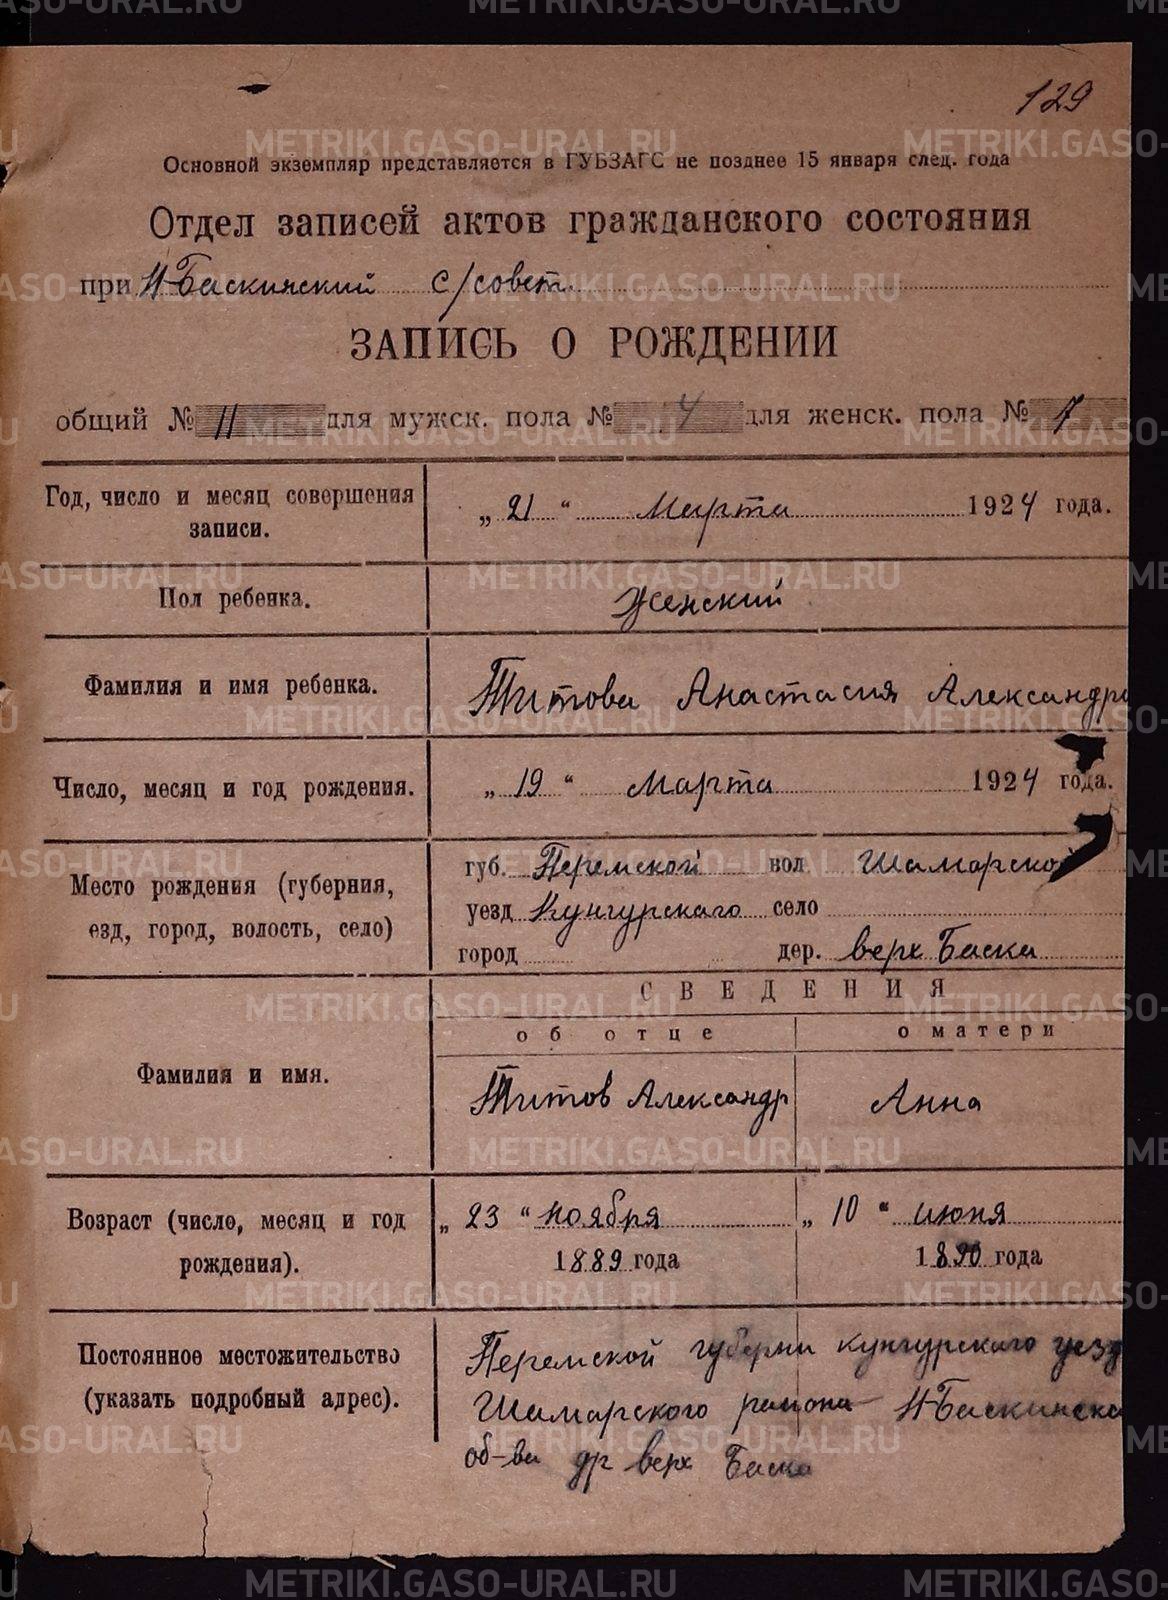 129
Основной экземпляр представляется в ГУБЗАГС не позднее 15 января след. года
Отдел записей актов гражданского состояния
при Н-Баскинский с/совет.
ЗАПИСЬ О РОЖДЕНИИ
общий № 11 для мужск. пола № 4 для женск. пола № 7
Год, число и месяц совершения записи. „ 21 “ Марта 1924 года.
Пол ребенка. Женский
Фамилия и имя ребенка. Титова Анастасия Александро
Число, месяц и год рождения. „ 19 “ Марта 1924 года.
Место рождения (губерния, езд, город, волость, село)
губ. Перемской вол Шамарской
уезд Кунгурскаго село
город дер. верх Баска
СВЕДЕНИЯ
об отце о матери
Фамилия и имя. Титов Александр Анна
Возраст (число, месяц и год рождения). „ 23 “ ноября 1889 года „ 10 “ июня 1890 года
Постоянное местожительство (указать подробный адрес).
Перемской губерни кунгурскаго уезд
Шамарского района Н-Баскинска
об-ва др верх Баска
METRIKI.GASO-URAL.RU